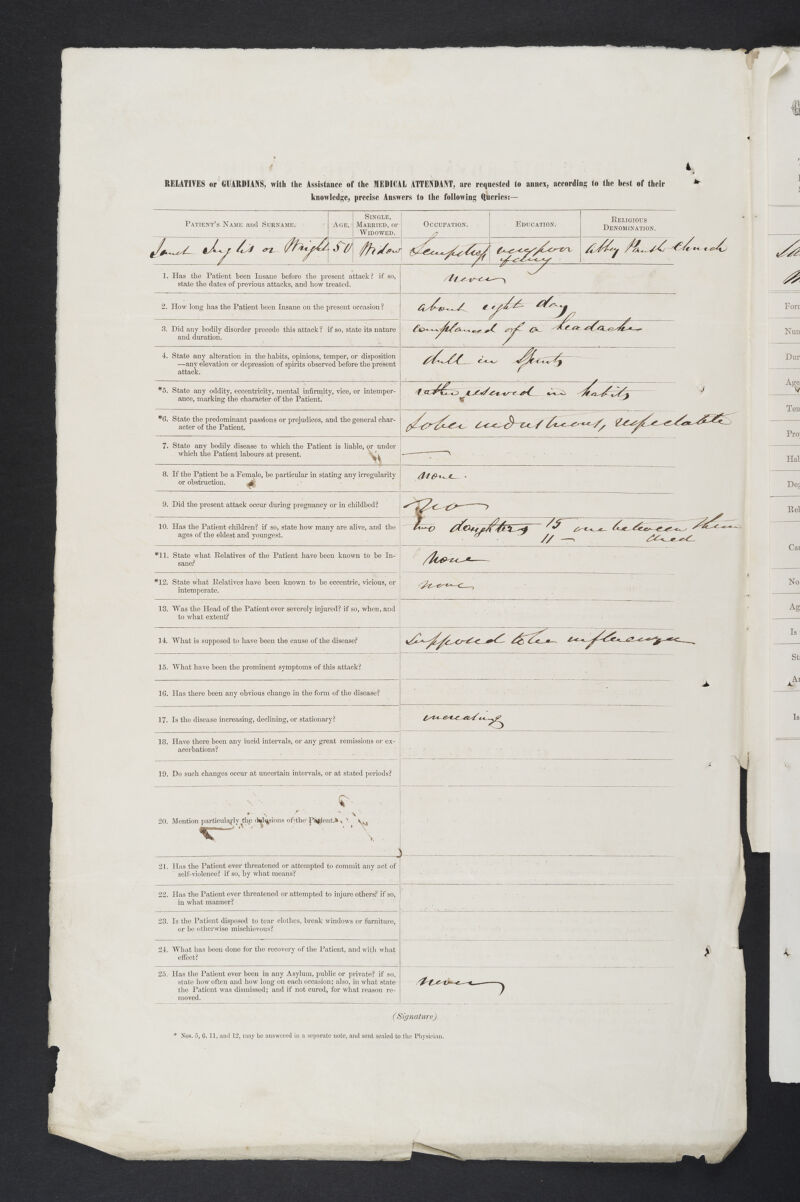 RELATIVES or GUARDIANS, with the Assistance of the MEDICAL ATTENDANT, are requested to annex, according to the best of their
knowledge, precise Answers to the following Queries:—
PATIENT'S NAME and SURNAME. AGE. SINGLE, MARRIED, or WIDOWED. OCCUPATION. EDUCATION. RELIGIOUS DENOMINATION.
Janet Inglis or Wright 50 Widow Sempstress very poor Abbey Parish Church
1. Has the Patient been Insane before the present attack? if so, never
state the dates of previous attacks, and how treated.
2. How long has the Patient been Insane on the present occasion? about eight days
3. Did any bodily disorder precede this attack? if so, state its nature complained of a headache
and duration.
4. State any alteration in the habits, opinions, temper, or disposition
—any elevation or depression of spirits observed before the present dull in Spirits
attack.
*5. State any oddity, eccentricity, mental infirmity, vice, or intemper- rather reserved in habits
ance, marking the character of the Patient.
*6. State the predominant passions or prejudices, and the general char- Sober industrious, respectable
acter of the Patient.
7. State any bodily disease to which the Patient is liable, or under
which the Patient labours at present. —
8. If the Patient be a Female, be particular in stating any irregularity none.
or obstruction.
9. Did the present attack occur during pregnancy or in childbed? no
10. Has the Patient children? if so, state how many are alive, and the two daughters 15 one between them
ages of the eldest and youngest. 11 — died
*11. State what Relatives of the Patient have been known to be In- None
sane?
*12. State what Relatives have been known to be eccentric, vicious, or none
intemperate.
13. Was the Head of the Patient ever severely injured? if so, when, and
to what extent?
14. What is supposed to have been the cause of the disease? Supposed to be influenza
15. What have been the prominent symptoms of this attack?
16. Has there been any obvious change in the form of the disease?
17. Is the disease increasing, declining, or stationary? increasing
18. Have there been any lucid intervals, or any great remissions or ex-
acerbations?
19. Do such changes occur at uncertain intervals, or at stated periods?
20. Mention particularly the delusions of the Patient.
21. Has the Patient ever threatened or attempted to commit any act of
self-violence? if so, by what means?
22. Has the Patient ever threatened or attempted to injure others? if so,
in what manner?
23. Is the Patient disposed to tear clothes, break windows or furniture,
or be otherwise mischievous?
24. What has been done for the recovery of the Patient, and with what
effect?
25. Has the Patient ever been in any Asylum, public or private? if so,
state how often and how long on each occasion; also, in what state never
the Patient was dismissed; and if not cured, for what reason re-
moved.
(Signature)
* Nos. 5, 6, 11, and 12, may be answered in a separate note, and sent sealed to the Physician.